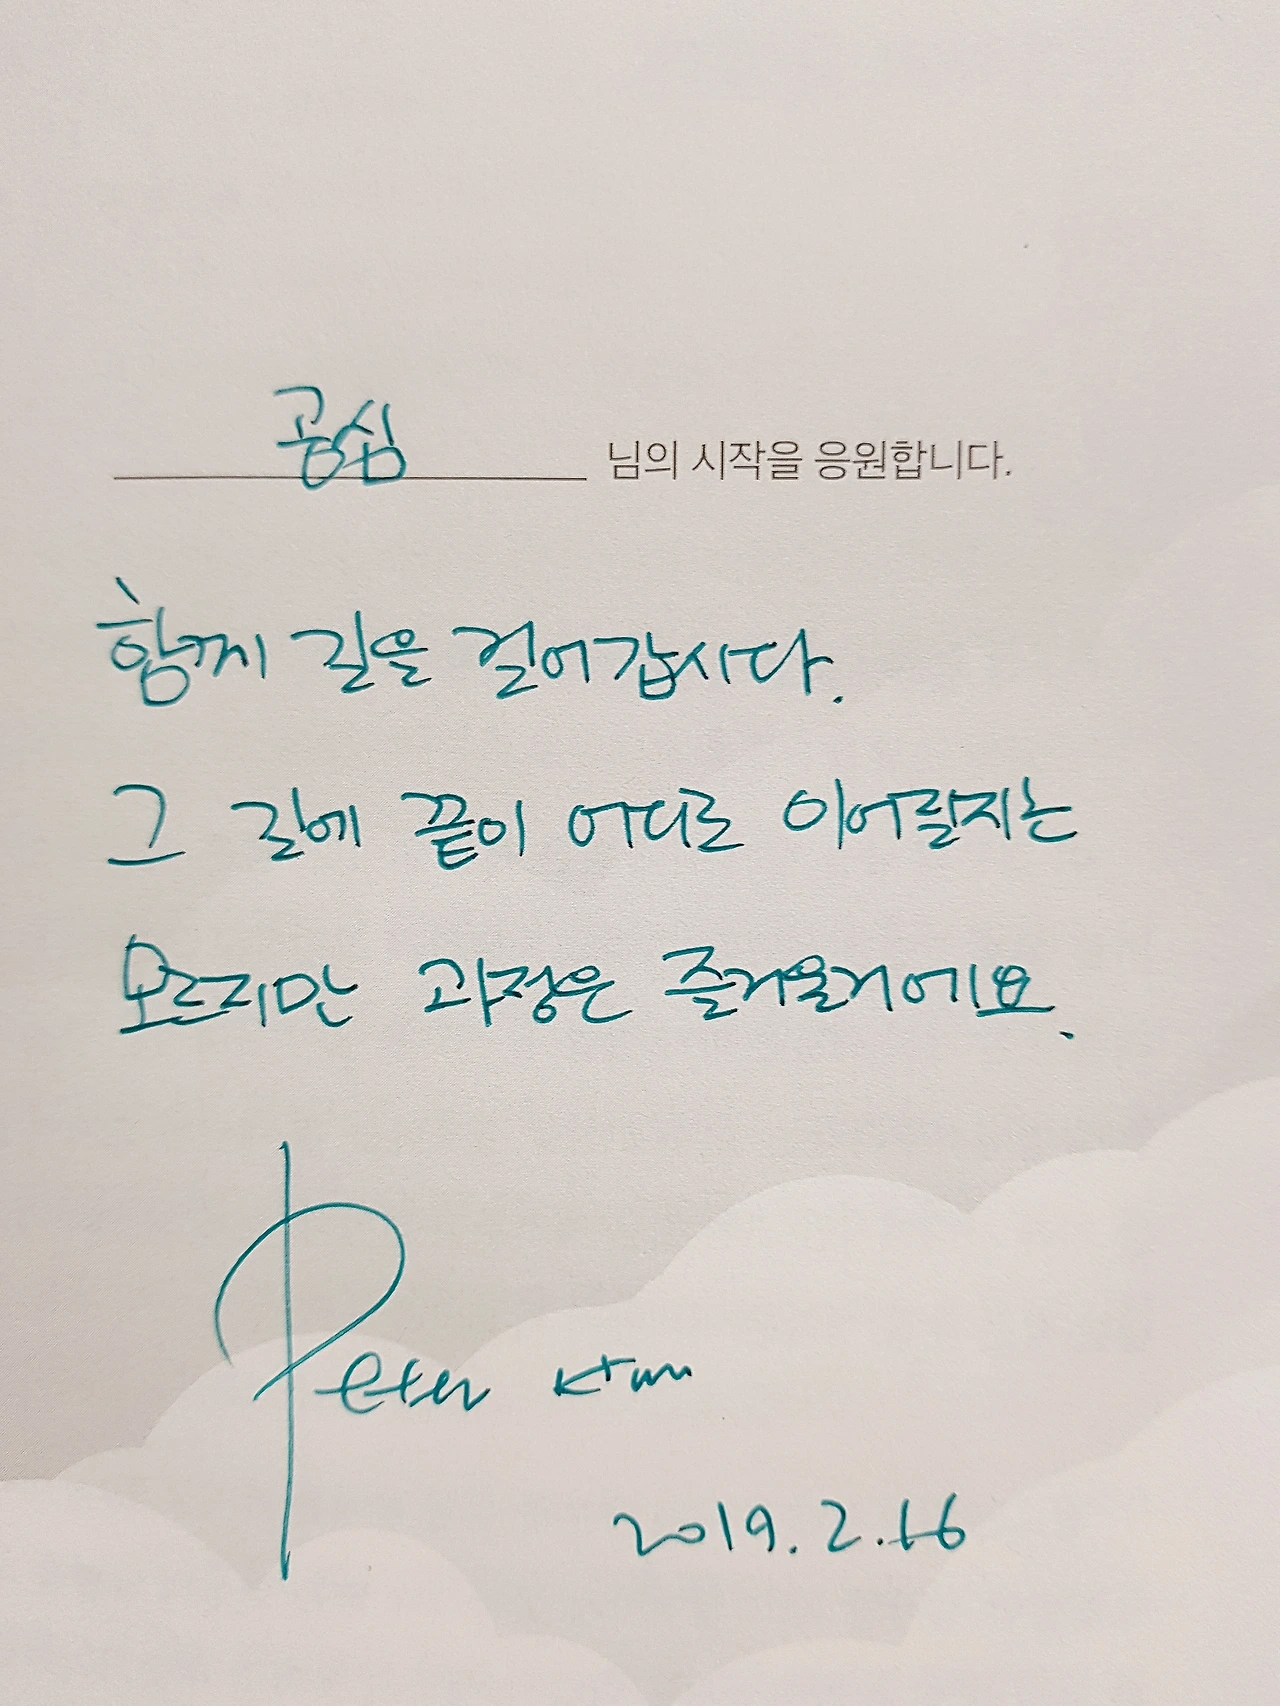 공심 님의 시작을 응원합니다.
함께 길을 걸어갑시다.
그 길에 끝이 어디로 이어질지는
모르지만 과정은 즐거울거에요.
Peter Kim
2019.2.16